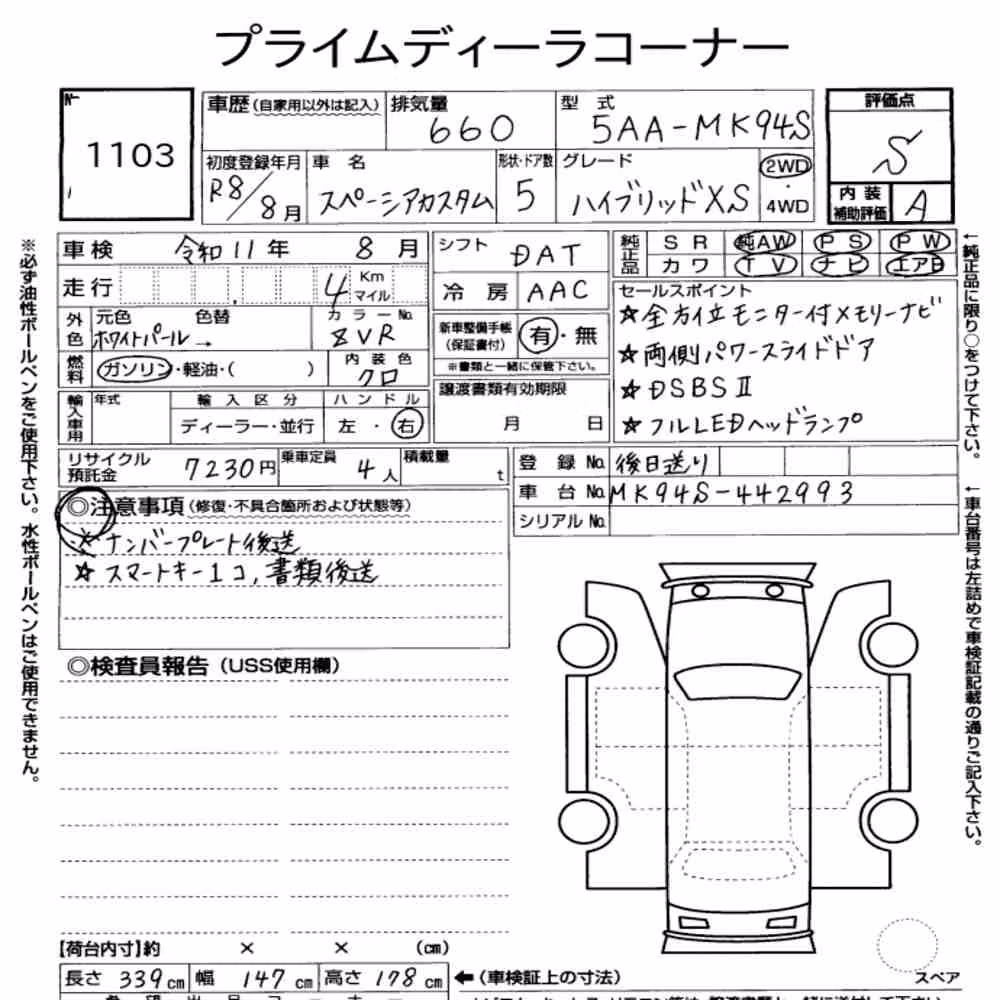 プライムディーラコーナー
№ 1103
車歴(自家用以外は記入) 排気量 660 型式 5AA-MK94S 評価点 S
初度登録年月 R8/8月 車名 スペーシアカスタム 形状・ドア数 5 グレード ハイブリッドXS 2WD・4WD 内装補助評価 A
車検 令和11年 8月 シフト DAT 純正品 SR 純AW PS PW
カワ TV ナビ エアB
走行 4 Km マイル 冷房 AAC
セールスポイント
☆全方位モニター付メモリーナビ
☆両側パワースライドドア
☆DSBSⅡ
☆フルLEDヘッドランプ
外色 元色 ホワイトパール→ 色替 カラーNo. ZVR
新車整備手帳(保証書付) 有・無
※書類と一緒に保管下さい。
燃料 ガソリン・軽油・( ) 内装色 クロ
譲渡書類有効期限 月 日
輸入車用 年式 輸入区分 ディーラー・並行 ハンドル 左・右
リサイクル預託金 7230円 乗車定員 4人 積載量 t
登録No. 後日送り
車台No. MK94S-442993
シリアルNo.
◎注意事項(修復・不具合箇所および状態等)
☆ナンバープレート後送
☆スマートキー1コ,書類後送
◎検査員報告(USS使用欄)
※必ず油性ボールペンをご使用下さい。水性ボールペンはご使用できません。
←純正品に限り○をつけて下さい。
←車台番号は左詰めで車検証記載の通りご記入下さい。
【荷台内寸】約 × × (cm)
長さ 339cm 幅 147cm 高さ 178cm ←(車検証上の寸法)
スペア